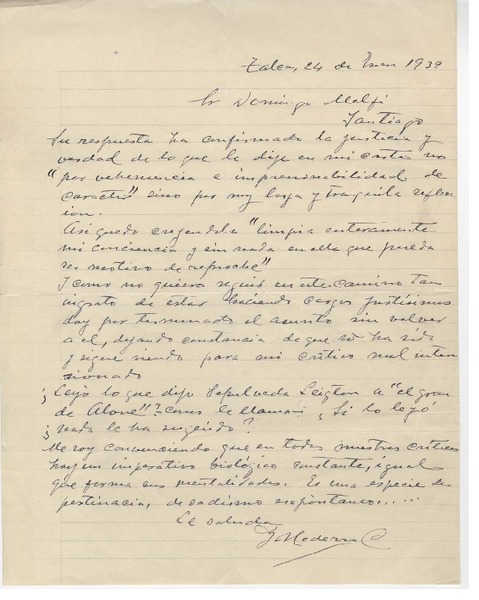 Talca, 24 de Enero 1939
Sr Domingo Melfi
Santiago
Su respuesta ha confirmado la justicia y
verdad de lo que le dije en mi carta no
"por vehemencia e impresionabilidad de
caracter" sino por muy larga y tranquila refle-
xion.
Asi quedo creyendole "limpia enteramente
mi conciencia y sin nada en ella que pueda
ser motivo de reproche"
I como no quiero seguir en este camino tan
ingrato de estar haciendo cargos justisimos
doy por terminado el asunto sin volver
a el, dejando constancia de que Ud ha sido
y sigue siendo para mi critico mal inten
sionado
¿Leyó lo que dijo Sepulveda Leigton a "el gran
de Alone"? como le llaman ¿Si lo leyó
¿nada le ha sugerido?
Me voy convenciendo que en todos nuestros criticos
hay un imperativo biológico constante, igual
que forma sus mentalidades. Es una especie de
pertinacia, de sadismo espontaneo.....
Le saluda